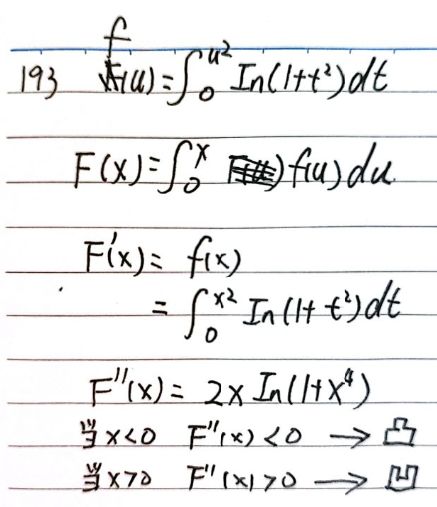 193 f(u)=∫₀^{u²} In(1+t²)dt
F(x)=∫₀^x f(u)du
F'(x)= f(x)
=∫₀^{x²} In(1+t²)dt
F''(x)= 2x In(1+x⁴)
当x<0 F''(x)<0 → 凸
当x>0 F''(x)>0 → 凹